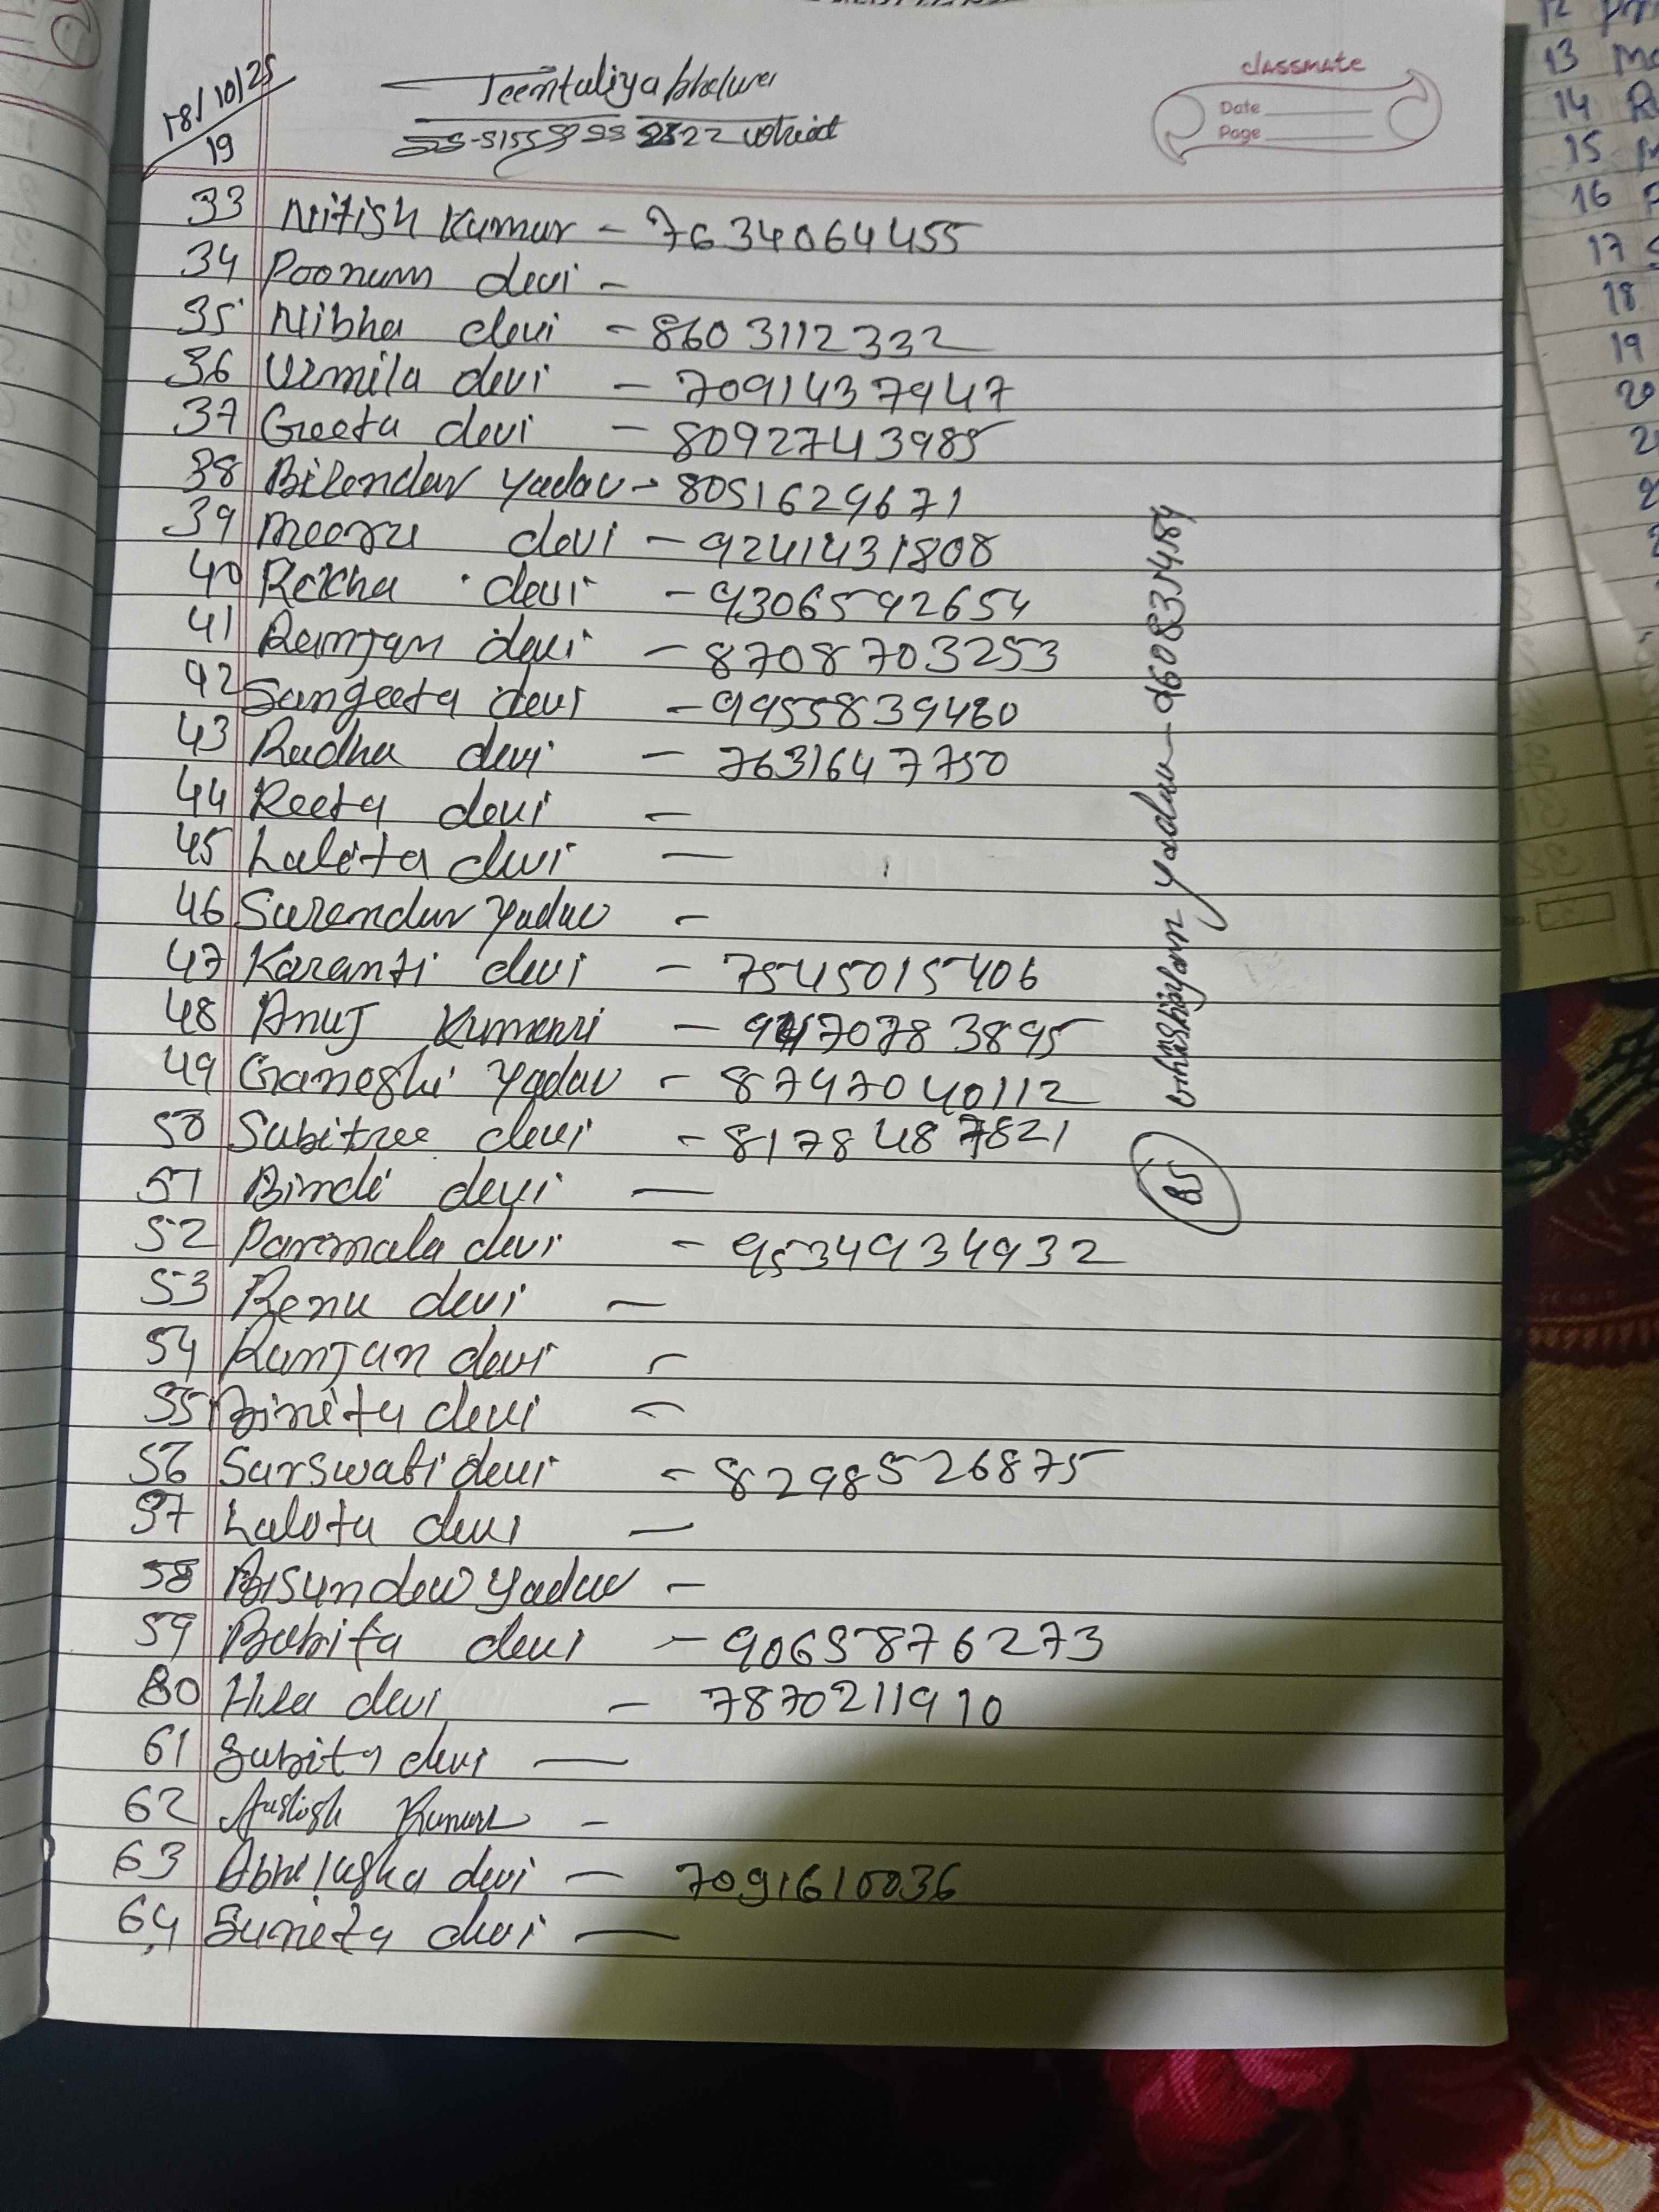 18/10/25
19
Teentaliya bhelwa
classmate
Date
Page
33 Nitish Kumar - 7634064455
34 Poonum devi -
35 Nibha devi - 8603112332
36 Urmila devi - 7091437947
37 Geeta devi - 8092743985
38 Birendar Yadav - 8051629671
39 Meera devi - 9241431808
40 Rekha devi - 9306592654
41 Ranjan devi - 8708703253
42 Sangeeta devi - 9955839460
43 Radha devi - 7631647750
44 Reeta devi -
45 Lalita devi -
46 Surendar Yadav -
47 Karanti devi - 7545015406
48 Anuj Kumari -
49 Ganeshi Yadav - 8747040112
50 Sabitree devi - 8178487821
51 Bindi devi -
52 Parmala devi - 9534934932
53 Renu devi -
54 Ranjan devi -
55 Binita devi -
56 Sarswati devi - 8298526875
57 Lalota devi -
58 Bisundew Yadav -
59 Babita devi - 9065876273
60 Hira devi - 7870211910
61 Sabita devi -
62 Kumar -
63 Abhilasha devi - 7091610036
64 Sunita devi -
yadav - 9608354584
85
12
13
14
15
16
17
18
19
20